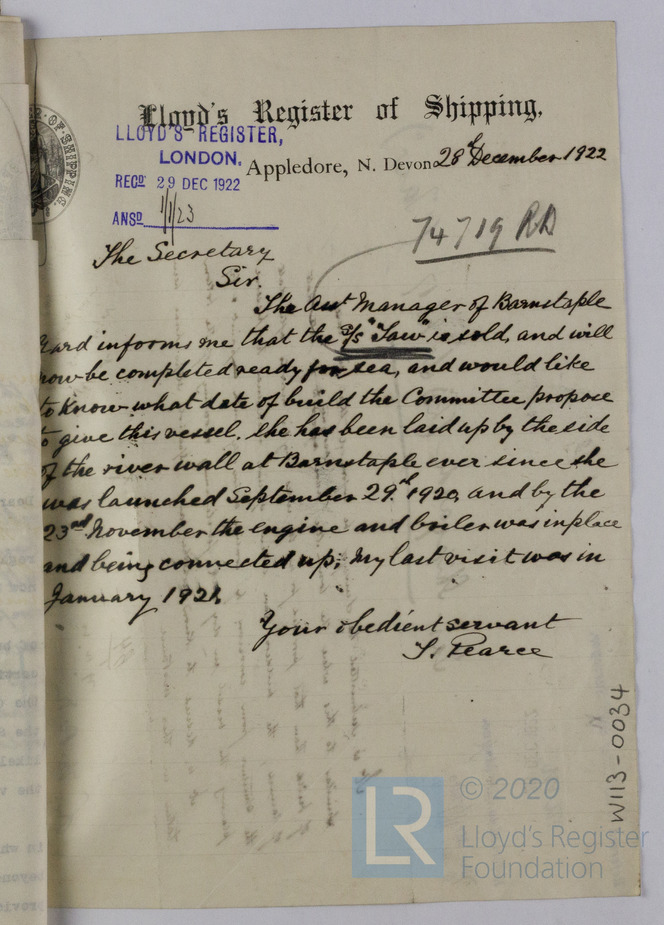 Lloyd's Register of Shipping,
LLOYD'S REGISTER,
LONDON.
RECD 29 DEC 1922
ANSD 1/1/23
Appledore, N. Devon 28th December 1922
74719 RD
The Secretary
Sir.
The Asst Manager of Barnstaple
Yard informs me that the S/S "Taw" is sold, and will
now be completed ready for sea, and would like
to know what date of build the Committee propose
to give this vessel, she has been laid up by the side
of the river wall at Barnstaple ever since she
was launched September 29th 1920, and by the
23rd November the engine and boiler was in place
and being connected up; My last visit was in
January 1921.
Your obedient servant
S. Pearce
W113-0034
LR
© 2020
Lloyd's Register
Foundation